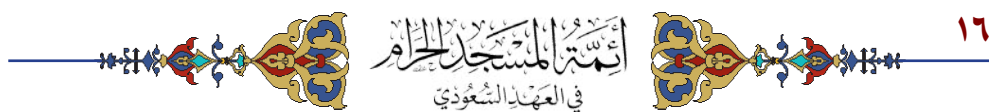 ١٦
أئمة المسجد الحرام
في العهد السعودي